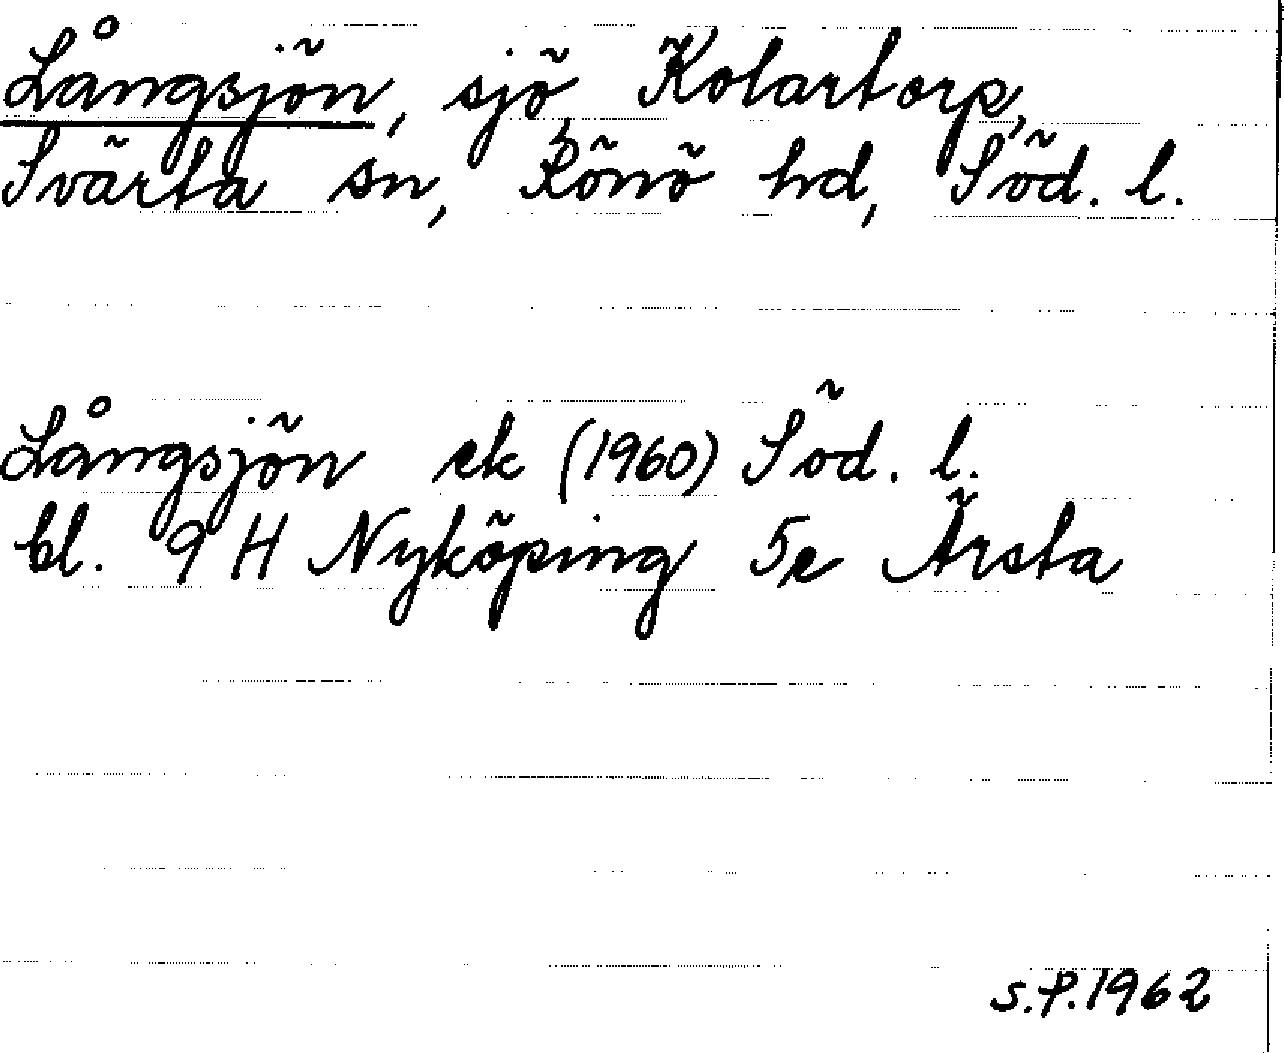 Långsjön, sjö, Kolartorp,
Svärta sn, Rönö hd, Söd. l.
Långsjön ek (1960) Söd. l.
bl. 9 H Nyköping 5e Ärsta
S.P. 1962